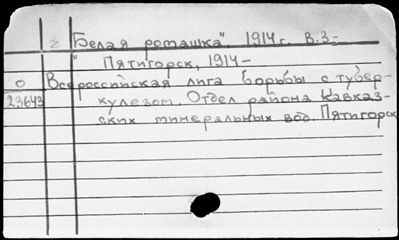 2 "Белая ромашка". 1914 г. В.3-
Пятигорск, 1914-
О Всероссийская лига борьбы с тубер-
23643 кулезом. Отдел района Кавказ-
ских минеральных вод. Пятигорск